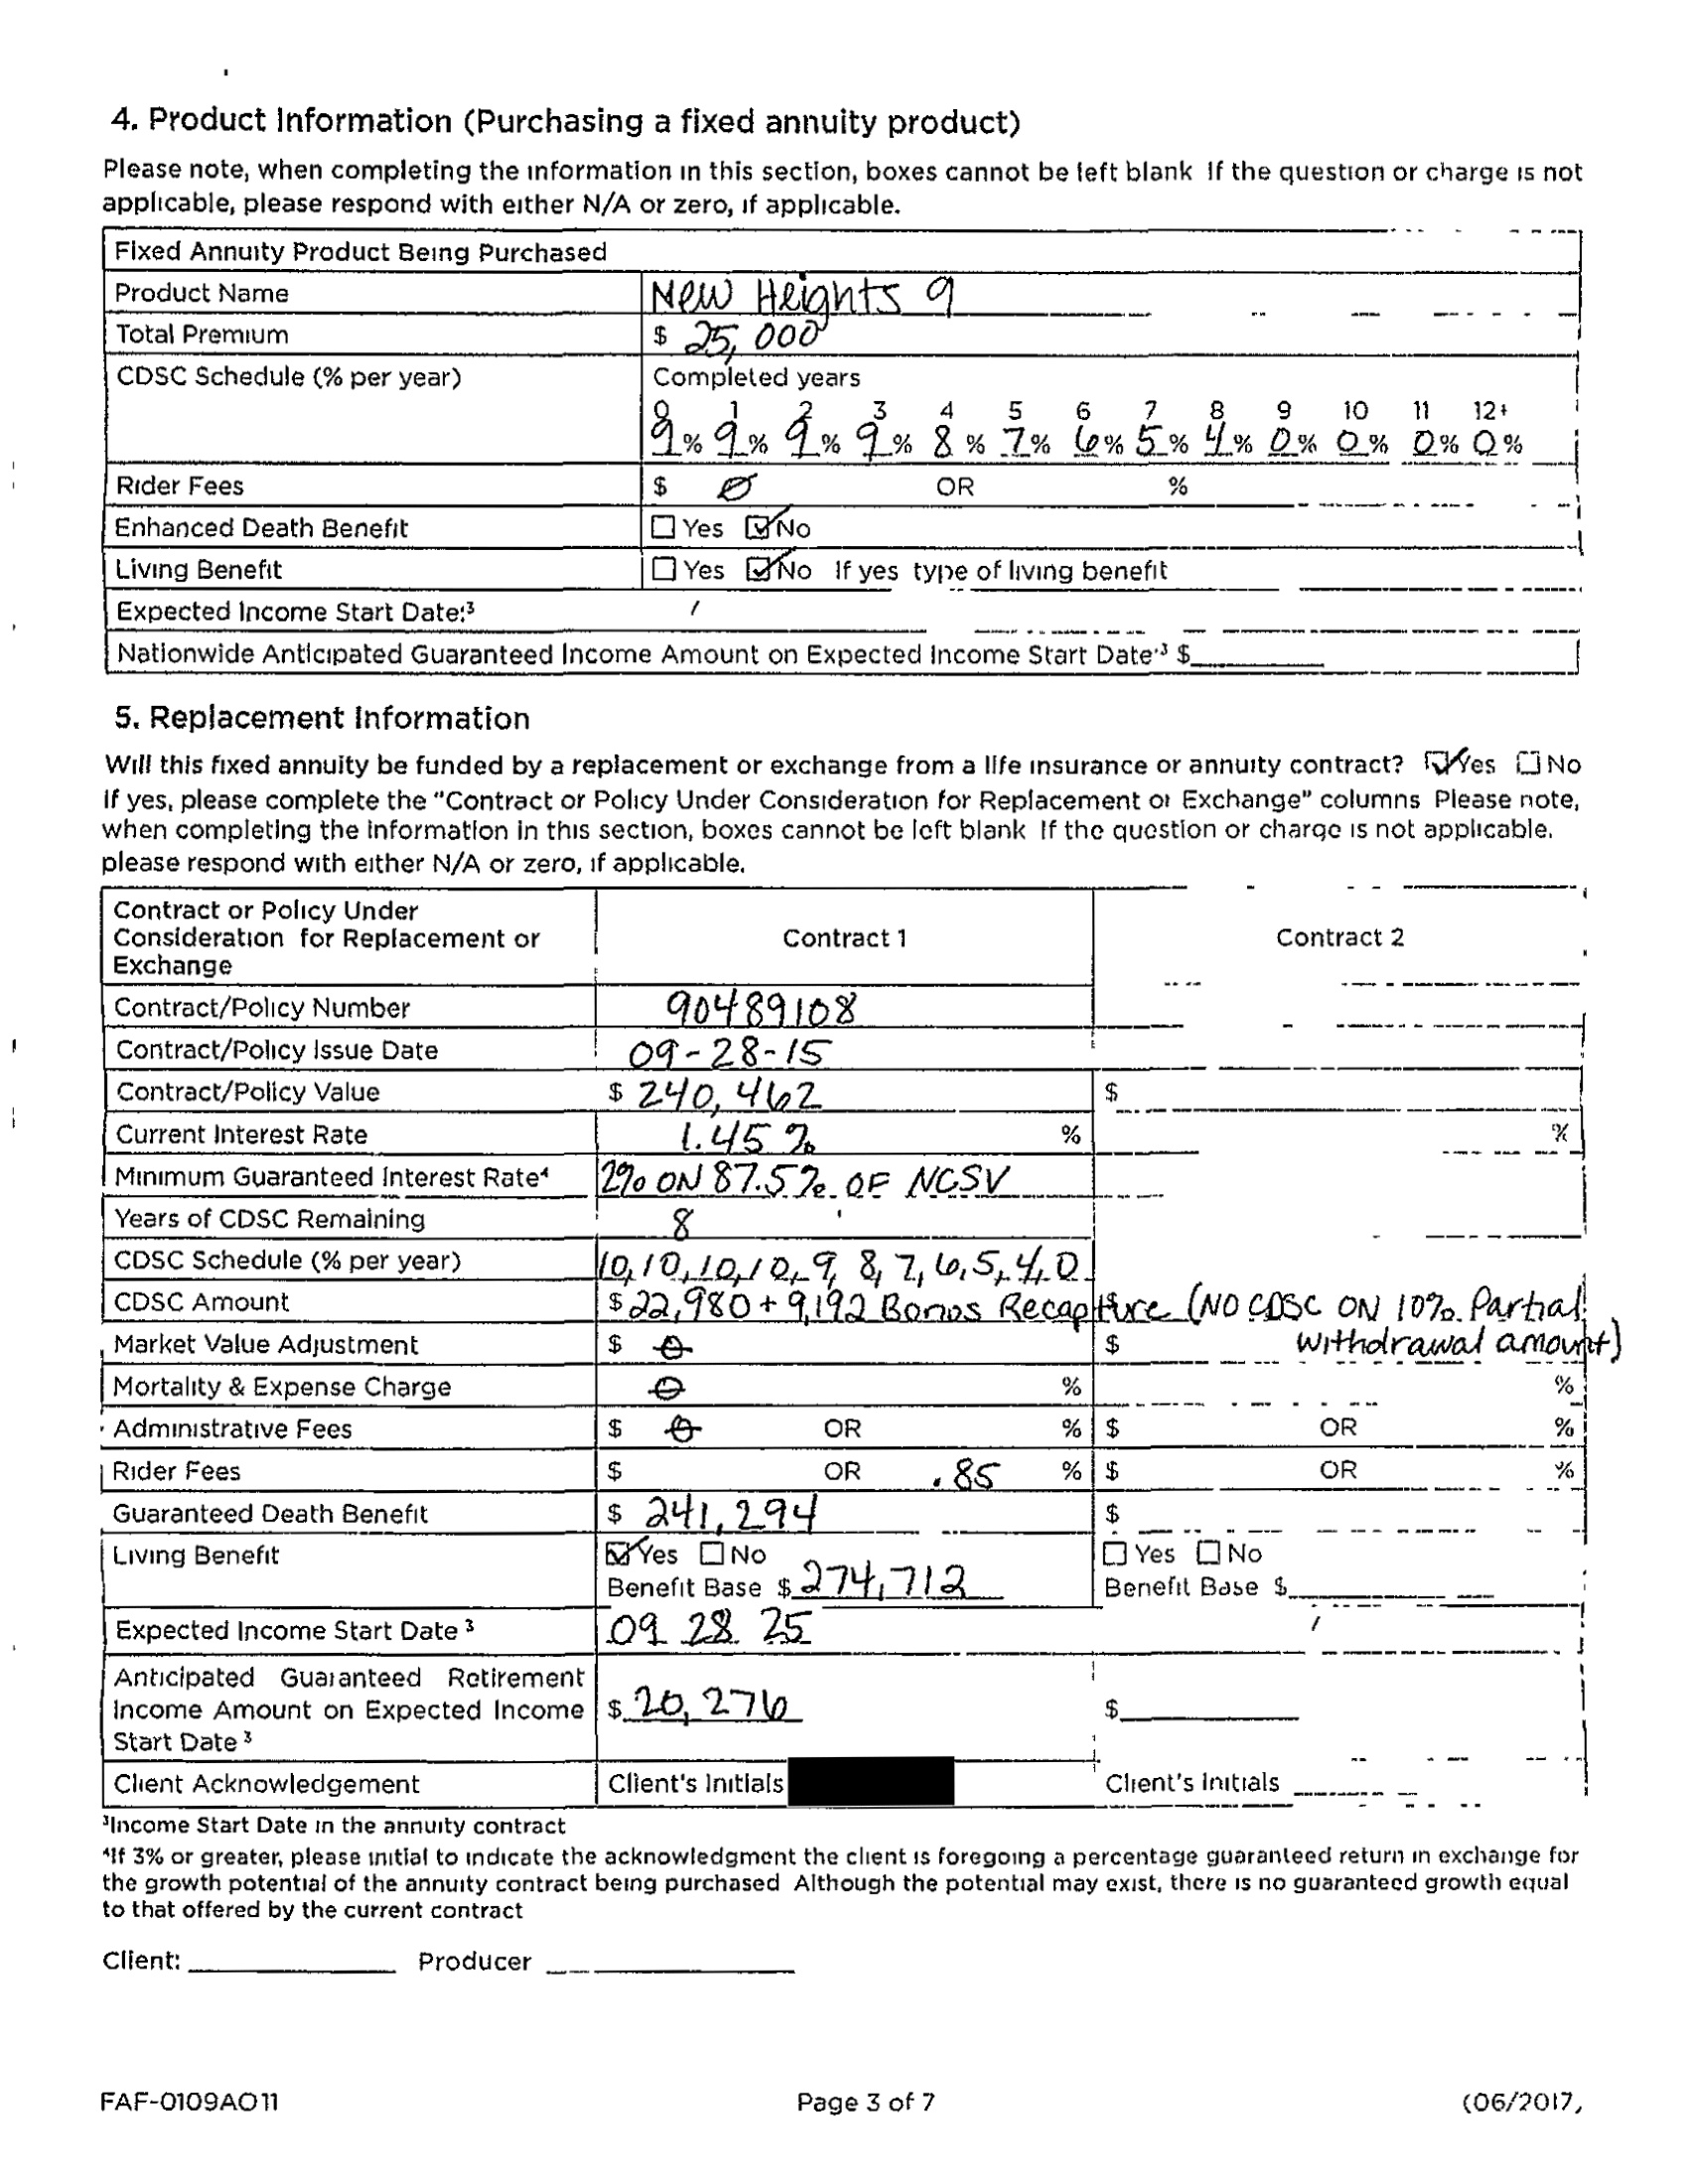 4. Product Information (Purchasing a fixed annuity product)
Please note, when completing the information in this section, boxes cannot be left blank If the question or charge is not
applicable, please respond with either N/A or zero, if applicable.
Fixed Annuity Product Being Purchased
Product Name New Heights 9
Total Premium $ 25,000
CDSC Schedule (% per year) Completed years
0 1 2 3 4 5 6 7 8 9 10 11 12+
9% 9% 9% 9% 8% 7% 6% 5% 4% 0% 0% 0% 0%
Rider Fees $ Ø OR %
Enhanced Death Benefit ☐ Yes ☑ No
Living Benefit ☐ Yes ☑ No If yes type of living benefit
Expected Income Start Date:³ /
Nationwide Anticipated Guaranteed Income Amount on Expected Income Start Date:³ $
5. Replacement Information
Will this fixed annuity be funded by a replacement or exchange from a life insurance or annuity contract? ☑ Yes ☐ No
If yes, please complete the "Contract or Policy Under Consideration for Replacement or Exchange" columns Please note,
when completing the information in this section, boxes cannot be left blank If the question or charge is not applicable,
please respond with either N/A or zero, if applicable.
Contract or Policy Under
Consideration for Replacement or Contract 1 Contract 2
Exchange
Contract/Policy Number 90489108
Contract/Policy Issue Date 09-28-15
Contract/Policy Value $ 240,462 $
Current Interest Rate 1.45% % %
Minimum Guaranteed Interest Rate⁴ 2% ON 87.5% OF NCSV
Years of CDSC Remaining 8
CDSC Schedule (% per year) 10,10,10,10,9,8,7,6,5,4,0
CDSC Amount $ 22,980 + 9,192 Bonus Recapture (NO CDSC ON 10% Partial
Market Value Adjustment $ 0 $ withdrawal amount)
Mortality & Expense Charge 0 % %
Administrative Fees $ 0 OR % $ OR %
Rider Fees $ OR .85 % $ OR %
Guaranteed Death Benefit $ 241,294 $
Living Benefit ☑ Yes ☐ No ☐ Yes ☐ No
Benefit Base $ 274,712 Benefit Base $
Expected Income Start Date ³ 09 28 25 /
Anticipated Guaranteed Retirement
Income Amount on Expected Income $ 20,276 $
Start Date ³
Client Acknowledgement Client's Initials Client's Initials
³Income Start Date in the annuity contract
⁴If 3% or greater, please initial to indicate the acknowledgment the client is foregoing a percentage guaranteed return in exchange for
the growth potential of the annuity contract being purchased Although the potential may exist, there is no guaranteed growth equal
to that offered by the current contract
Client: Producer
FAF-0109AO11 Page 3 of 7 (06/2017,